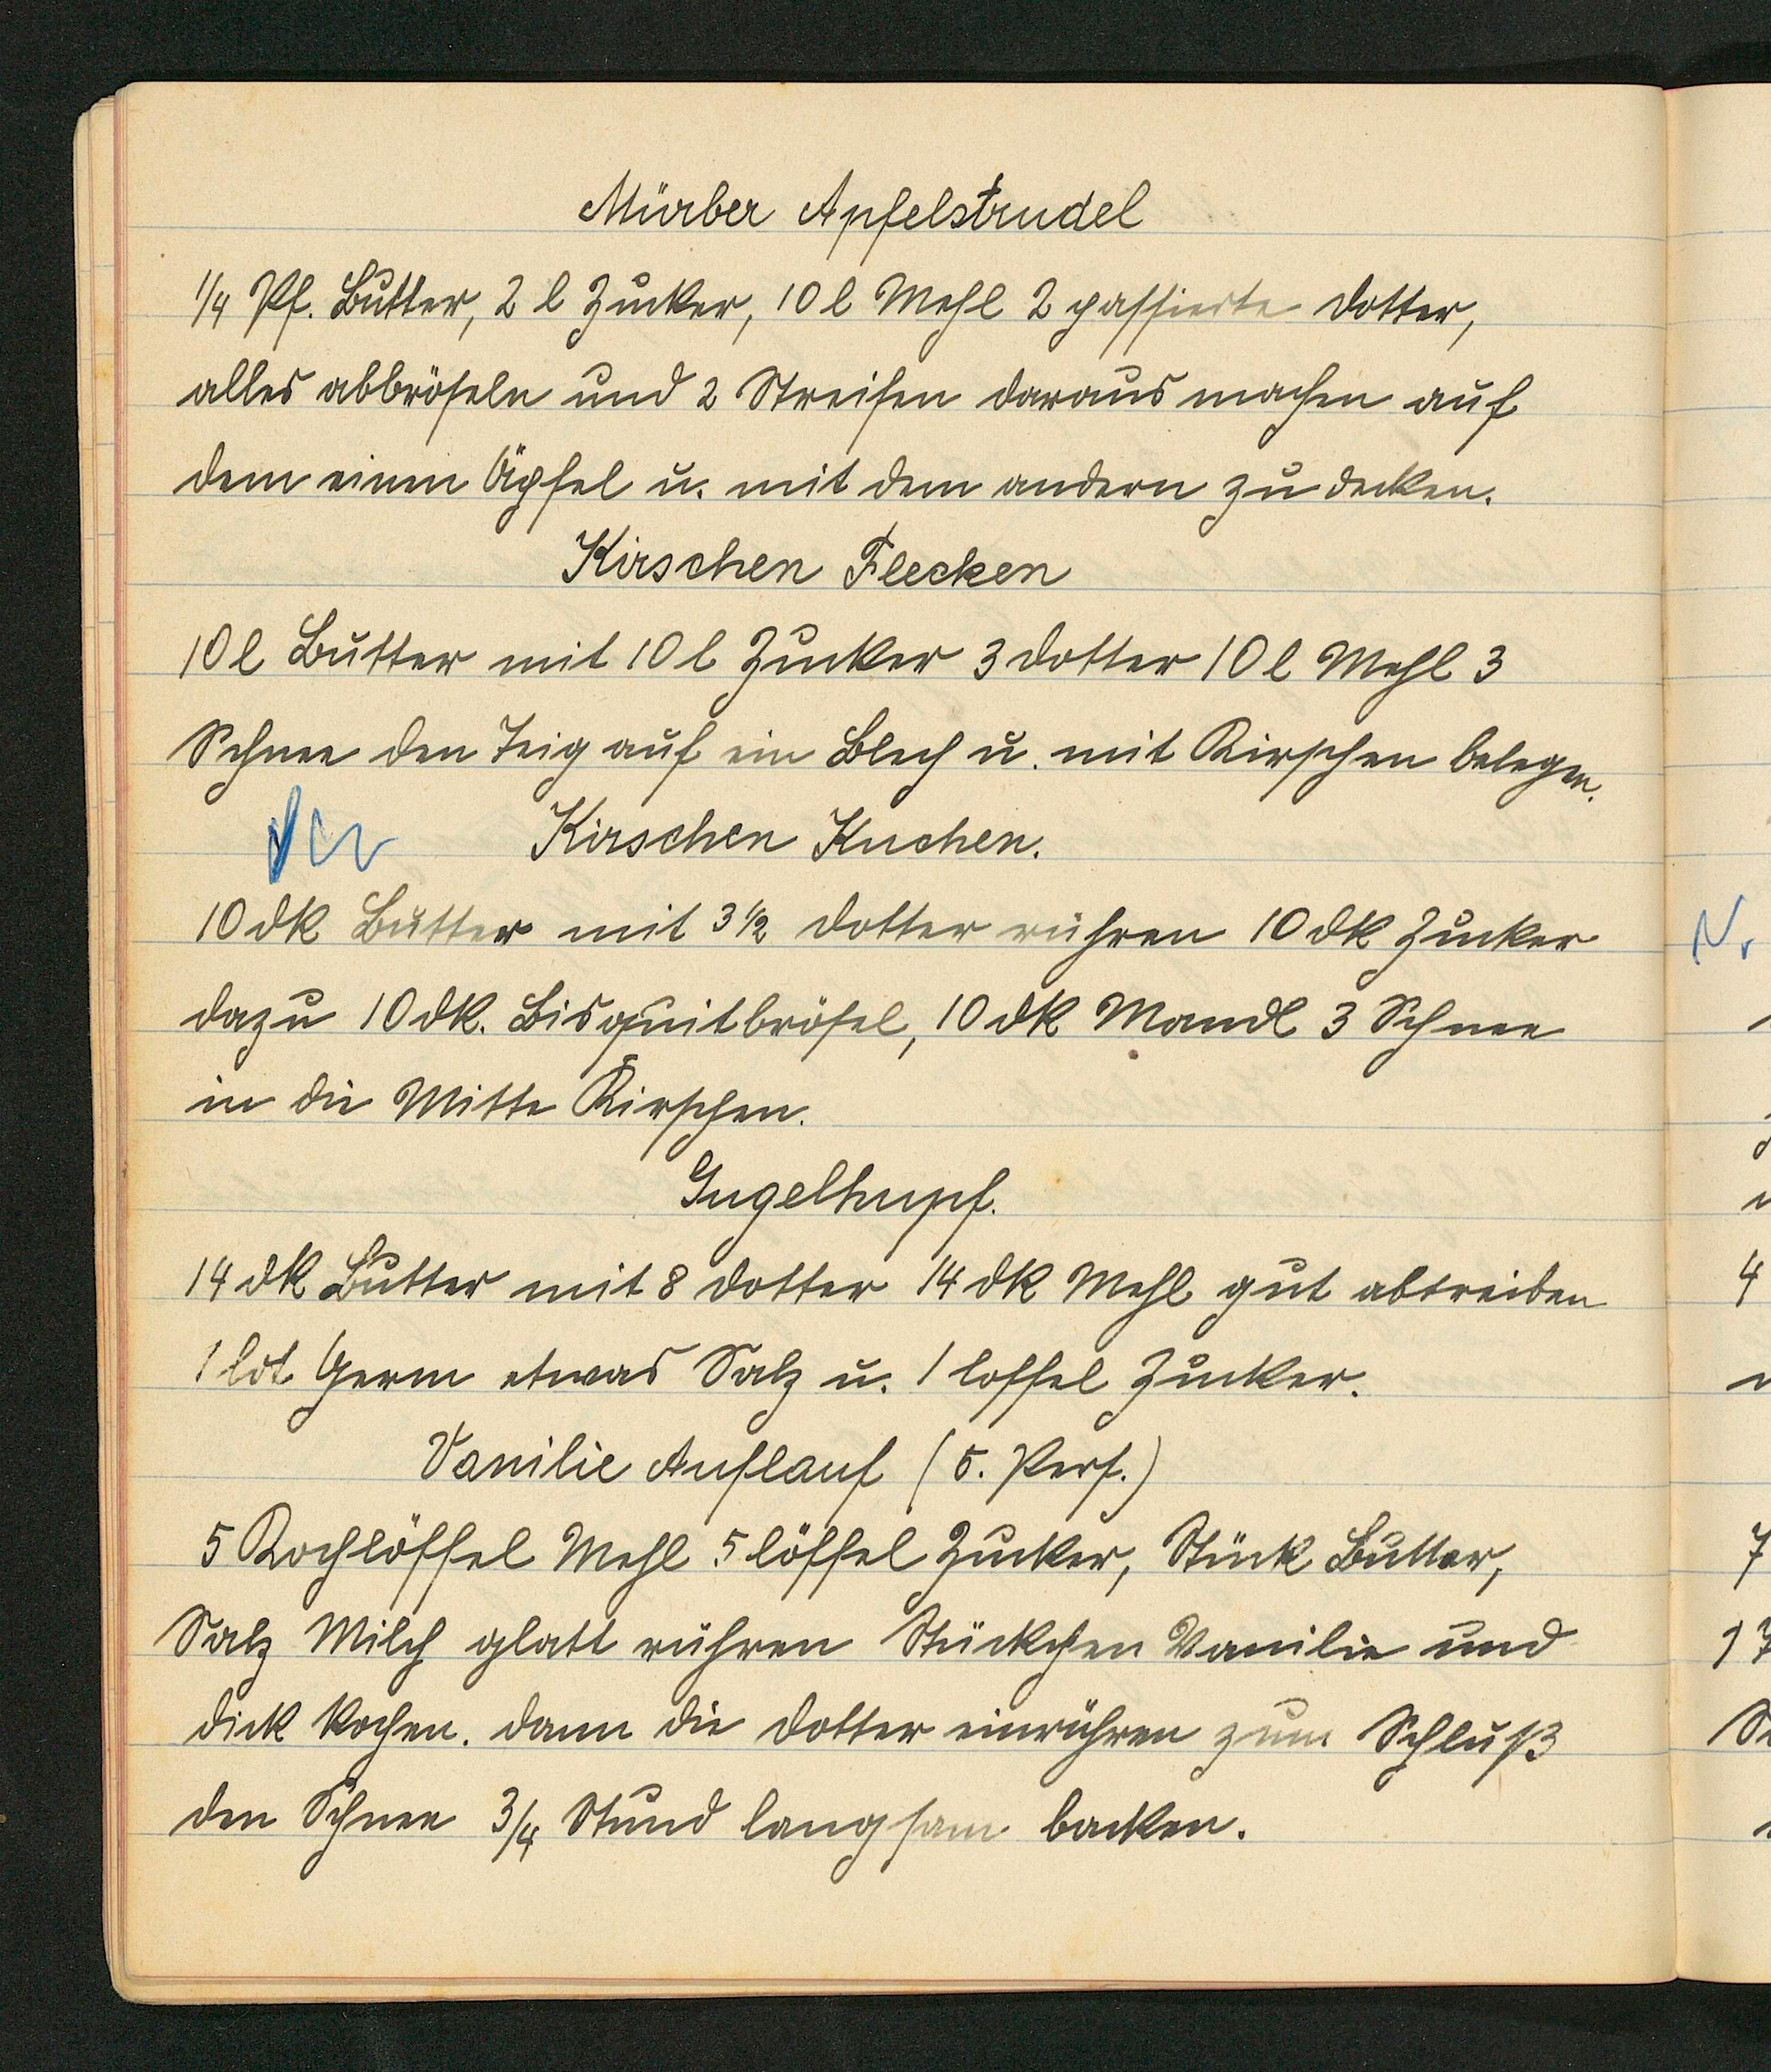 Mürber Apfelstrudel
1/4 Pf. Butter, 2 l Zucker, 10 l Mehl 2 passierte Dotter,
alles abbröseln und 2 Streifen daraus machen auf
dem einen Äpfel u. mit dem andern zu decken.
Kirschen Flecken
10 l Butter mit 10 l Zucker 3 Dotter 10 l Mehl 3
Schnee den Teig auf ein Blech u. mit Kirschen belegen.
Kirschen Kuchen.
10 dk Butter mit 3 1/2 Dotter rühren 10 dk Zucker
dazu 10 dk. Bisquitbrösel, 10 dk Mandl 3 Schnee
in die Mitte Kirschen.
Gugelhupf.
14 dk Butter mit 8 Dotter 14 dk Mehl gut abtreiben
1 lot Germ etwas Salz u. 1 loffel Zucker.
Vanilie Auflauf (5. Pers.)
5 Kochlöffel Mehl 5 löffel Zucker, Stück Butter,
Salz Milch glatt rühren Stückchen Vanilie und
dick kochen. dann die Dotter einrühren zum Schluß
den Schnee 3/4 Stund langsam backen.